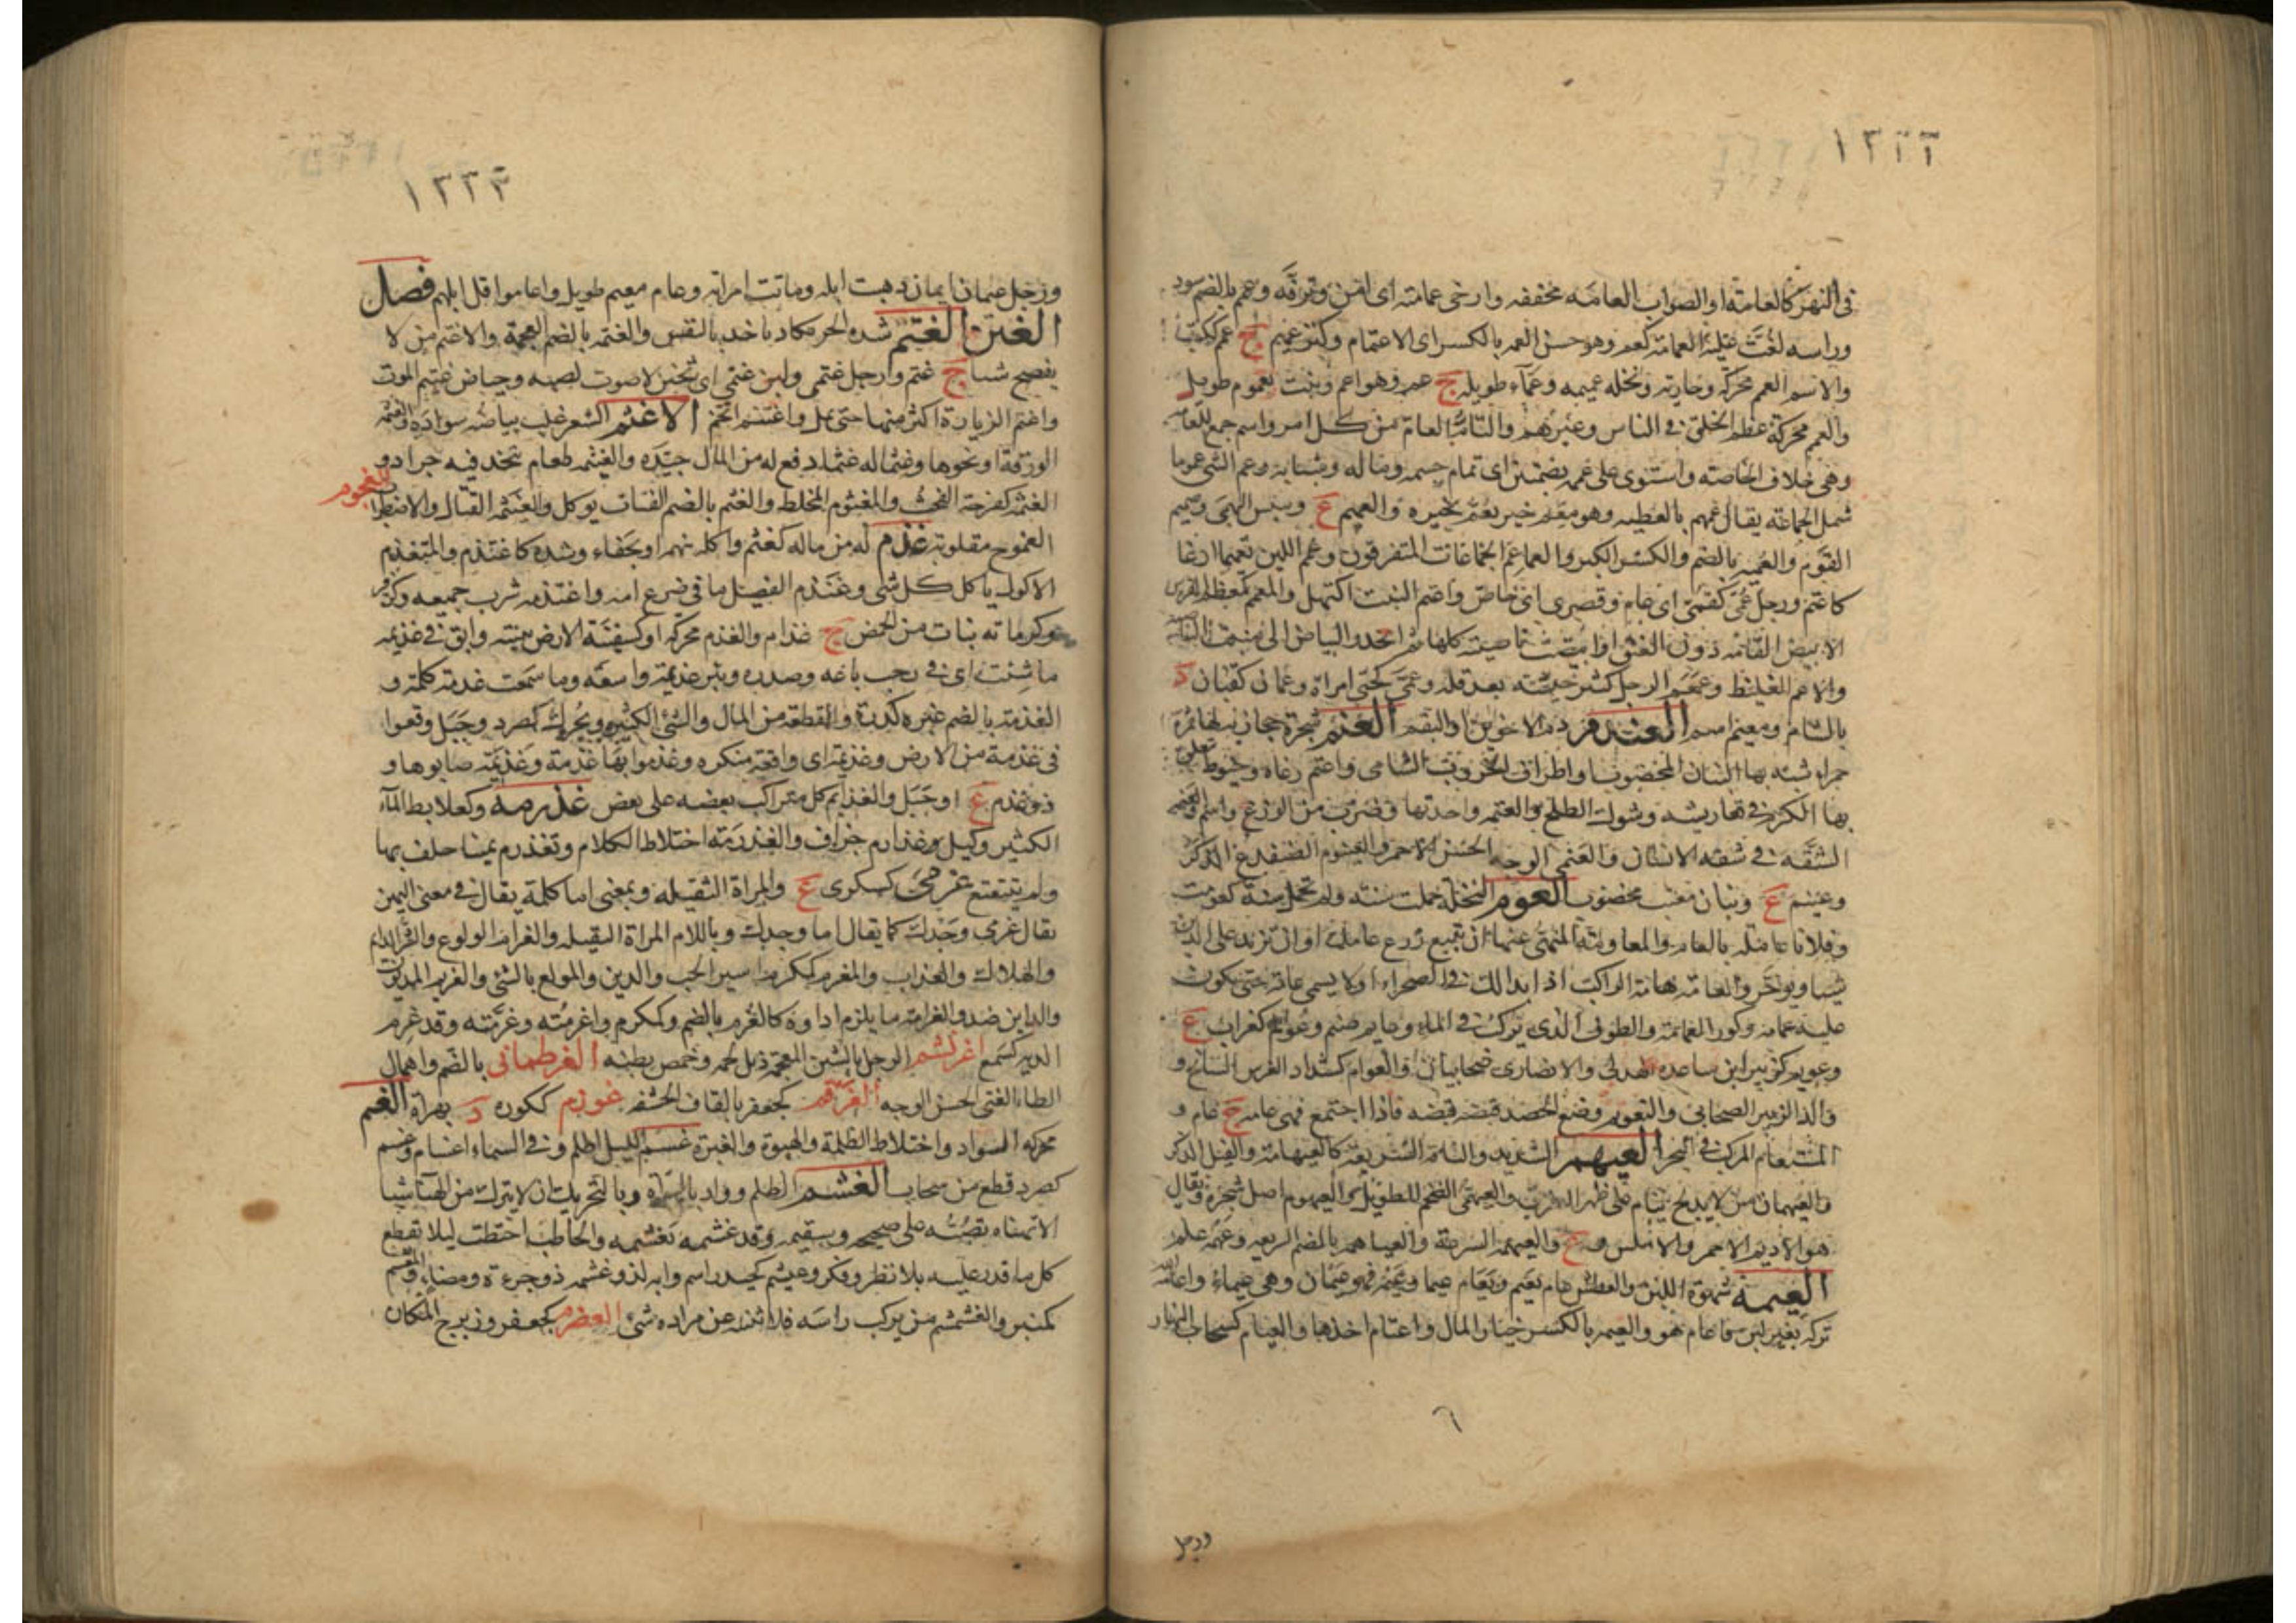 ١٣٢٢
في النهر كالعامة او الصواب العامه مخففه وارخى عمامته اى امن وترفه وعمم بالضم سود
وراسه لفت عليه العمامة كعمم وهو حسن العمه بالكسر اى الاعتمام وكل عميم ج عمم ككتب
والاسم العمم محركه وجاريه ونخله عميمه وعماء طويله ج عم وهو اعم ونبت يعموم طويل
والعمم محركة عظم الخلق في الناس وغيرهم والتام العام من كل امر واسم جمع للعامه
وهي خلاف الخاصه واستوى على عممه بضمتين اى تمام جسمه وماله وشبابه وعم الشى عموما
شمل الجماعة يقال عمهم بالعطيه وهو معم خير يعم بخيره والعميم ع ويبيس البهمى وصميم
القوم والعميه بالضم والكسر الكبر والعماعم الجماعات المتفرقون وعمم اللبن تعميما ارغا
كاعتم ورجل عمى كقمى اى عام وقصرى اى خاص واعتم النبت اكتهل والمعمم كمعظم الفرس
الابيض الهامه دون العنق او ابيضت ناصيته كلها ثم انحدر البياض الى منبت الناصيه
والاعم الغليظ وعمعم الرجل كثر جيشه بعد قله وعمى كحتى امراة وعمان كقبان د
بالشام ومعتم اسم العندم دم الاخوين او البقم العنم شجرة حجازيه لها ثمرة
حمراء شبه بها البنان المخضوب او اطراف الخروب الشامى واعنم رعاه وخيوط يتعلق
بها الكرم في تعاريشه وشوك الطلح والعنمه واحدتها وضرب من الوزغ واسم والعنم
الشقه في شفه الانسان والعنمى الوجه الحسن الاحمر والعيثوم الضفدع الذكر
وعينم ع وبنان معنم مخضوب العوم النخلة حملت سنه ولم تحمل سنة كعومت
وفلانا عامله بالعام والمعاومة المنهى عنها ان تبيع زرع عامك او ان تزيد على الدين
شيا ويؤخر والعامه هامة الراكب اذا بدا لك في الصحراء او لا يسمى عامة حتى يكون
عليه عمامه وكور العمامة والطوف الذى يركب في الماء وعايم صنم وعوام كغراب ع
وعويم كزبير ابن ساعده الهدلي والانصارى صحابيان والعوام كشداد الفرس السابح و
والد الزبير الصحابي والتعويم وضع الحصد قبضه قبضه فاذا اجتمع فهى عامه ج عام و
المشعام المركب في البحر العيهم الشديد والناقة السريعة كالعيهامة والفيل الذكر
والعيهمان من لا يدلج ينام على ظهر الطريق والعيهمى الضخم الطويل والعيهوم اصل شجرة ويقال
هو الاديم الاحمر والاملس و ع والعيهمة السرعة والعياهم بالضم السريعه وعيهمه علم
العيمة شهوة اللبن والعطش عام يعيم ويعام عيما وعيمة فهو عيمان وهي عيماء واعامه الله
تركه بغير لبن فاعام هو والعيمه بالكسر خيار المال واعتام اخذها والعيام كسحاب النهار
٦
ورجل
١٣٢٣
ورجل عيمان ايمان ذهبت ابله وماتت امراته وعام معيم طويل واعاموا قل ابلهم فصل
الغين الغتم شده الحر يكاد ياخذ بالنفس والغتمه بالضم العجمة والاغتم من لا
يفصح شيا ج غتم ورجل غتمى ولبن غتمى اى ثخين لا صوت لصبه وحياض غتيم الموت
واغتم الزيارة اكثر منها حتى يمل واغتنم اتخم الاغثم الشعر غلب بياضه سواده والغثمه
الورقة او نحوها وغثم له غثما دفع له من المال جيده والغثيمه طعام يتخذ فيه جراد و
الغثم كفرحة الفحث والمغثوم المخلط والغثم بالضم القباب يوكل والغيثمه القتال والاضطراب
الغجوم
الغموج مقلوبه غذم له من ماله كغثم واكله بنهم او بجفاء وشده كاغتذم والمتغذم
الاكول ياكل كل شى وغذم الفصيل ما في ضرع امه واغتذمه شرب جميعه وكزفر
وكرمانه نبات من الحمض ج غذام والغذم محركه او كسفينة الارض ينبته والق في غذيمه
ما شئت اى في رحب باعه وصدره وبئر غذيمة واسعه وما سمعت غذمة كلمة و
الغذمة بالضم غبره كدرة والقطعة من المال والشئ الكثير ويحرك كصرد وجبل وقعوا
في غذمة من الارض وغذيمة اى واقعة منكره وغذموا بها غذمة وغذيمة صابوها و
ذو غذم ع او جبل والغذايم كل متراكب بعضه على بعض غذرمه وكعلابط الماء
الكثير وكيل غذارم جزاف والغذرمة اختلاط الكلام وتغذرم يمينا حلف بها
ولم يتتعتع غرمى كسكرى ع والمراة الثقيله وبمعنى اما كلمة يقال في معنى اليمين
يقال غرمى وجدك كما يقال اما وجدك وباللام المراة الثقيله والغرام الولوع والشر الدايم
والهلاك والعذاب والمغرم كمكرم اسير الحب والدين والمولع بالشى والغريم المديون
والداين ضد والغرامه ما يلزم اداوه كالغرم بالضم وكمكرم واغرمته وغرمته وقد غرم
الديه كسمع اغرنشم الرجل بالشين المعجمة ذبل لحمه وخمص بطنه الغرطمانى بالضم واهمال
الطاء الفتى الحسن الوجه الغرقم كجعفر بالقاف الحشفه غوزم ككوره د بهراة الغسم
محركه السواد واختلاط الظلمة والهبوة والغبرة غسم الليل اظلم وفي السماء اغسام وغسم
كصرد قطع من سحاب الغشم الظلم وواد بالسراه وبالتحريك ان لا يترك من الهنا شيا
الا تهناه يصبه على صحيحه وسقيمه وقد غشمه تغشمه والحاطب احتطب ليلا يقطع
كل ما قدر عليه بلا نظر وفكر وغيشم كحيدر اسم وانه لذو غشمه ذو جرءة ومضاء والغشم
كمنبر والغشمشم من يركب راسه فلا يثنيه عن مراده شئ الغضرم كجعفر وزبرج المكان